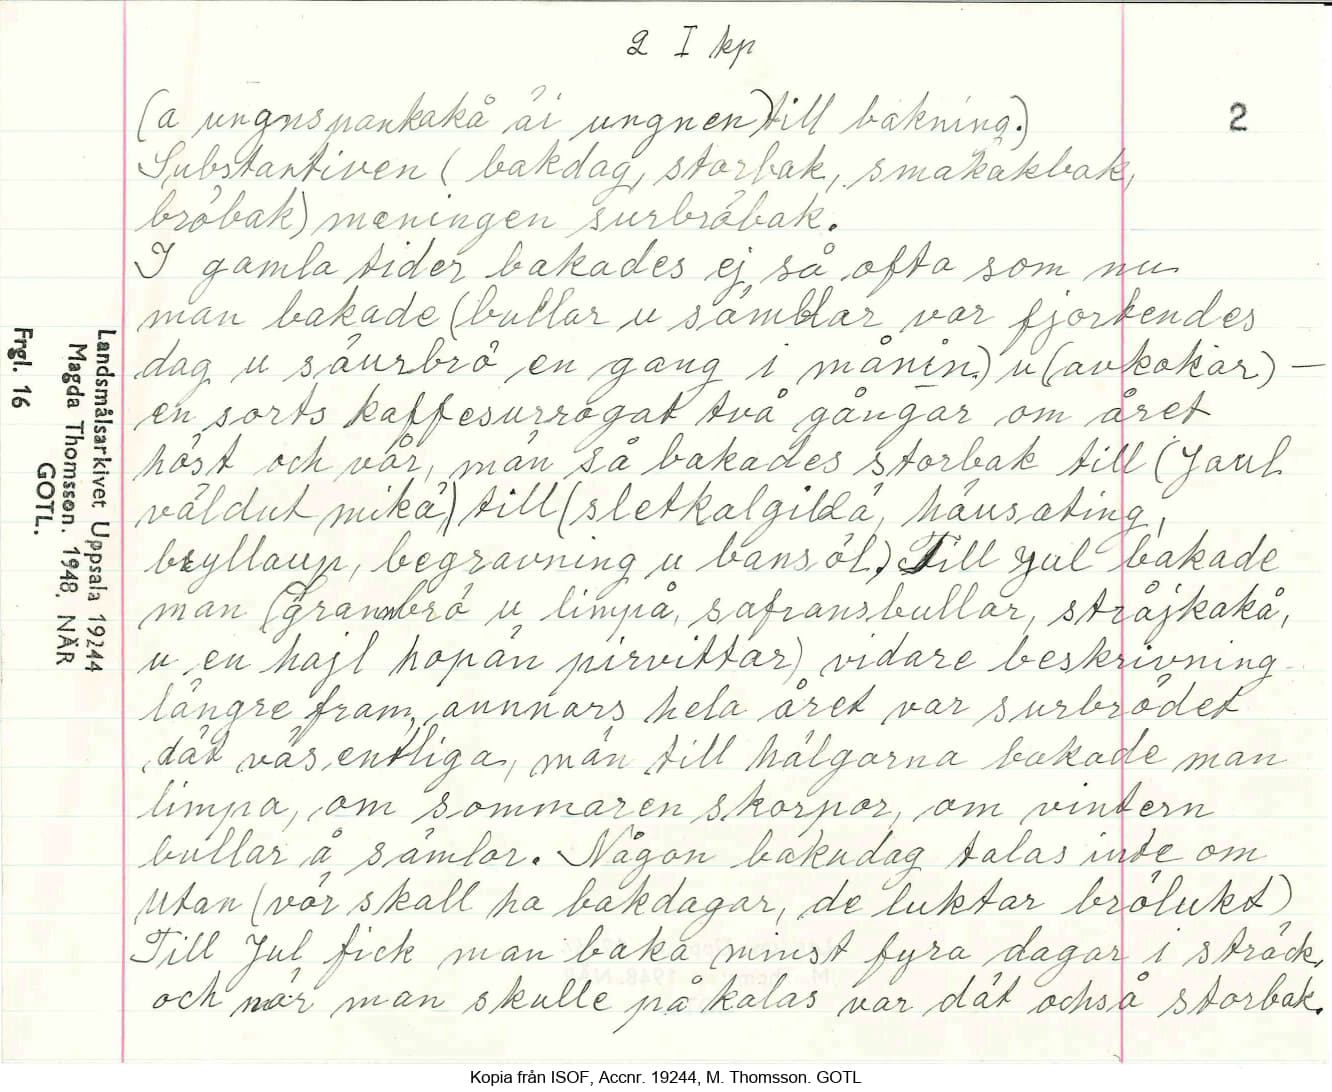 2 I kp
2
(a ungnspankakå äi ungnen) till bakning.)
Substantiven (bakdag, storbak, småkakbak,
bröbak) meningen surbröbak.
I gamla tider bakades ej så ofta som nu
man bakade (bullar u sämblar var fjortendes
dag u säurbrö en gang i månin.) u (avkokar) —
en sorts kaffesurrogat två gångar om året
höst och vår, män så bakades storbak till (Jaul
väldut mikä) till (sletkalgildä, häusating,
bryllaup, begravning u bansöl.) Till Jul bakade
man (grannbrö u limpå, safransbullar, stråjkakå,
u en hajl hopän pirvittar) vidare beskrivning
längre fram, annnars hela året var surbrödet
dät väsentliga, män till hälgarna bakade man
limpa, om sommaren skorpor, om vintern
bullar å sämlor. Någon bakudag talas inte om
utan (vör skall ha bakdagar, de luktar brölukt)
Till Jul fick man baka minst fyra dagar i sträck,
och när man skulle på kalas var dät också storbak.
Landsmålsarkivet Uppsala 19244
Magda Thomsson. 1948. NÄR
GOTL.
Frgl. 16
Kopia från ISOF, Accnr. 19244, M. Thomsson. GOTL